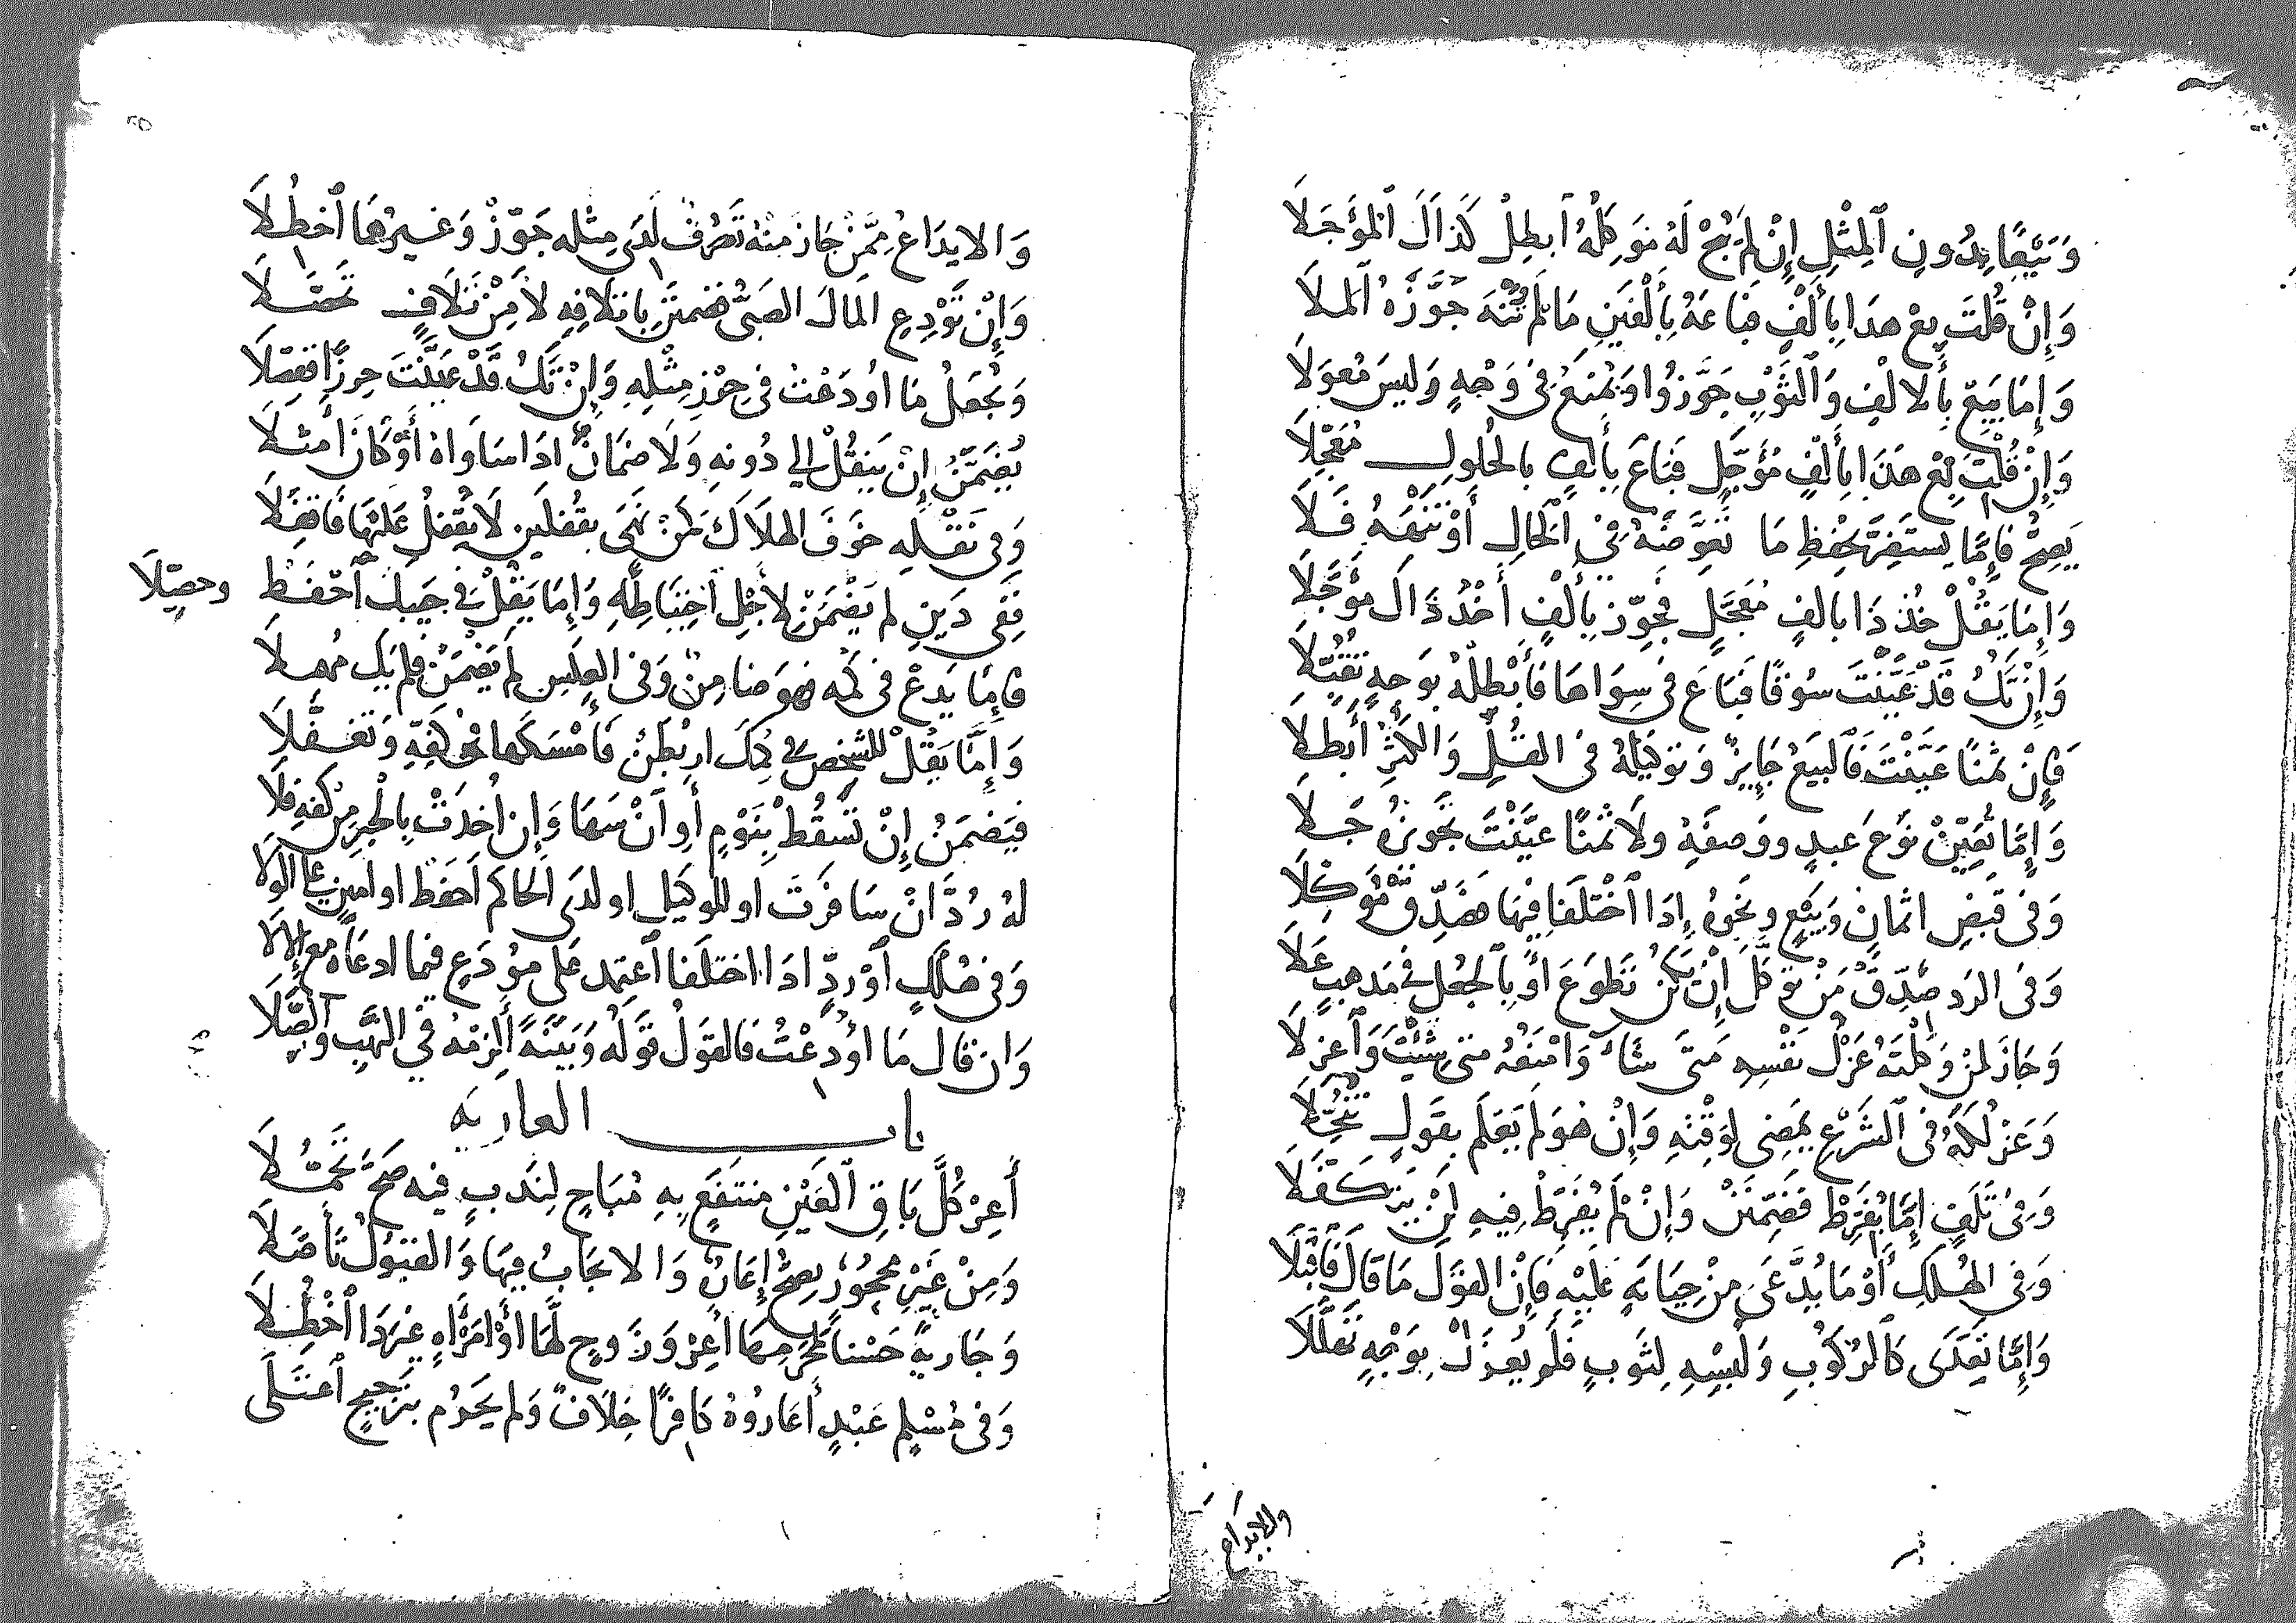 وَبَيْعًا بِدُونِ ٱلْمِثْلِ إِنْ لَمْ يُبِحْ لَهُ مُوَكِّلُهُ أَبْطِلْ كَذَاكَ ٱلْمُؤَجَّلَا
وَإِنْ قُلْتَ بِعْ هذا بِأَلْفٍ فَبَاعَهُ بِأَلْفَيْنِ مَا لَمْ تَنْهَهُ جَوَّزَهُ ٱلملَا
وَإِمَّا يَبِيعْ بِٱلالْفِ وَٱلثَّوْبِ جَوَّزُوا وَيُمْنَعُ فِى وَجْهٍ وَلَيسَ مُعَوَّلَا
وَإِنْ قُلْتَ بِعْ هَذَا بِأَلْفٍ مُؤَجَّلٍ فَبَاعَ بِأَلْفٍ بالحُلُولِ مُعَجَّلَا
يَصِحُّ فَإِمَّا يستَضِرَّ بحِفْظِ مَا تَعَوَّضَهُ فِى ٱلْحَالِ أَوْ تَنْهَهُ فَلَا
وَإِمَّا يَقُلْ خُذ ذَا بالفٍ مُعَجَّلٍ فَجَوِّز بِأَلْفٍ أَخْذُ ذَاكَ مُؤَجَّلَا
وَإِنْ تَكُ قَدْ عَيَّنْتَ سُوقًا فَبَاعَ فى سِوَاهَا فَأَبْطِلْهُ بوَجهٍ تَقُبِّلَا
فَإِنْ ثَمَنًا عَيَّنْتَ فَٱلبَيعُ جَايِزٌ وَتوكيلُهُ فى القُلِّ وَالكُثْرِ أَبطِلَا
وَإِمَّا تُعَيِّنْ نَوْعَ عبدٍ ووَصفَهُ ولَا ثَمَنًا عيَّنْتَ تجْويزُهُ جَلَا
وَفى قَبضِ اثمانٍ وَبَيْعٍ ونحْوِهِ إِذَا ٱخْتَلَفَا فِيهَا فَصَدِّقْ مُوَكِّلَا
وَفى الرَد صَدِّقْ مَنْ توَكَّلَ إِنْ يَكُنْ تَطَوَّعَ أَوْ بِٱلجُعْلِ فى مَذهبٍ عَلَا
وَجَازَ لمَنْ وَكَّلْتَهُ عَزْلُ نَفْسِهِ مَتَى شَاءَ وَامْنَعْهُ متى شِئْتَ وَٱعزِلَا
وَعَزْلُكَهُ فى ٱلشَّرْعِ يَمْضِى لِوَقْتِهِ وَإِنْ هُوَ لَمْ يَعْلَم بقَولٍ تُنُخِّلَا
وَفِى تَلَفٍ إِمَّا يُفَرِّطْ فَضَمِّنَنْ وَإِنْ لَمْ يُفَرِّطْ فِيهِ لَنْ يَتَكَفَّلَا
وَفِى الهُلكِ أَوْ مَا يُدَّعَى مِنْ خِيَانَةٍ عَلَيْهِ فَإِنْ القَوْلَ مَا قَالَ فَٱقْبَلَا
وَإِمَّا تَعَدَّى كَٱلرُّكُوبِ وَلُبْسِهِ لِثَوبٍ فَلَمْ يُعزَلْ بِوَجْهٍ تَعَلَّلَا
والايداع
وَالايدَاعُ مِمَّنْ جَازَ مِنْهُ تَصَرُّفٌ لَدَى مِثْلِهِ جَوِّزْ وَغَيرُهَا ٱحْظُلَا
وَإِنْ تُوْدِعِ المَالَ الصَبِىَّ فضَمِّنَنْ باتلَافِهِ لَا مِنْ تَلَافٍ تحصَّلَا
وَيُجْعَلُ مَا اودَعْتَ فى حِرْزِ مِثْلِهِ وَإِنْ تَكُ قَدْ عَيَّنْتَ حِرزًا ففصِّلَا
يُضَمَّنُ إِنْ يَنقُلْ الى دُونِهِ وَلَا ضمَانَ اذَا سَاوَاهُ أَوْ كَانَ أَمثَلَا
وَفى نَقْلِهِ خَوفَ الهلَاكَ كَمَنْ نَهَى بقُفلَينِ لَا تُقْفِلْ عَلَيْهَا فَاقفَلَا
فَفى دَينِ لم يَضْمَنْ لِأَجْلِ ٱحْتِيَاطِهِ وَإِمَّا يَقُلْ فى جَيبِكَ ٱحْفَظْ وحصّلَا
فإمَّا يَدعْ فى كُمِّهِ فهوَ ضَامِنٌ وَفى العكسِ لَمْ يَضْمَنْ فلم يَكُ مُهملَا
وَإِمَّا يَقُلْ للشخص فى كُمِّكَ اربُطَنْ فَأَمْسَكَها فى كَفِّهِ وَتَغفَّلَا
فيَضمَنُ إِنْ تَسْقُطْ بِنَوْمٍ أَوِ ٱنْ سَهَا وَإِن أُخذَتْ بِٱلْجبرِ مِنْ كَفِّهِ فلَا
لهُ رُدَّ انْ سَافَرْتَ او للوكيلِ او لدَى الحاكم احفَظ او امينٍ على الوَلَا
وَفى هُلْكٍ أَوْ رَدٍّ اذَا اختلَفا ٱعتمد على مُودَعٍ فيما ادعَاهُ مع الالَا
وَان قَالَ مَا أُودعْتُ فَالقَوْلُ قَولُهُ وَبَيِّنَةً أَلْزِمْهُ فى النَّهبِ وَٱلصِّلَا
باب العاريه
أَعِرْ كُلَّ بَاقِ ٱلعَيْنِ مُنتَفَعٍ بِهِ مُبَاحٍ لِنَدبٍ فيه صَحَّ تَحَمُّلَا
وَمِنْ غَيْرِ مَحْجُورٍ يصحُّ إِعَارٌ وَالايجَابُ فِيهَا وَالقَبُولُ تَأَصَّلَا
وَجَاريةً حَسْنا لمَحْرَمِهَا أَعِرْ وَزَوجٍ لَّهَا أَوْ امرَأَةٍ غَيرَ ذَا ٱحْظُلَا
وَفى مُسْلِمِ عَبْدٍ أَعَارُوهُ كَافِرًا خِلَافٌ وَلم يَحْرُم بِتَرجيحٍ ٱعتَلَى